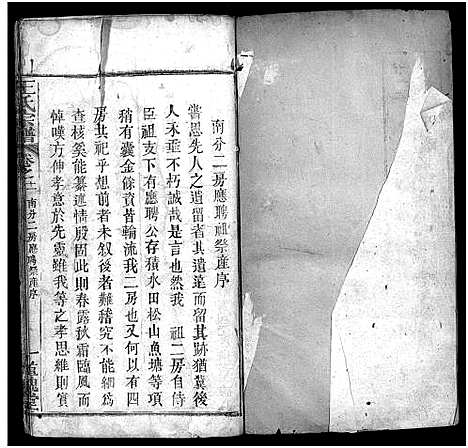 南分二房應聘祖祭產序
嘗思先人之遺留者其遺蓬而留其跡猶冀後
人禾垂不朽誠哉是言也然我 祖二房自侍
臣祖支下有應聘公存積水田松山魚塘等項
稍有囊金條資昔輪流我二房也又何以有四
房共祀乎想前者未敘後者難稽究不能細為
查核奚能纂述情殷固此則春露秋霜臨風而
悼嘆方伸孝意於先靈雖我等之孝思維則實
王氏宗譜 卷之
南分二房應聘祭產序
一
槐堂